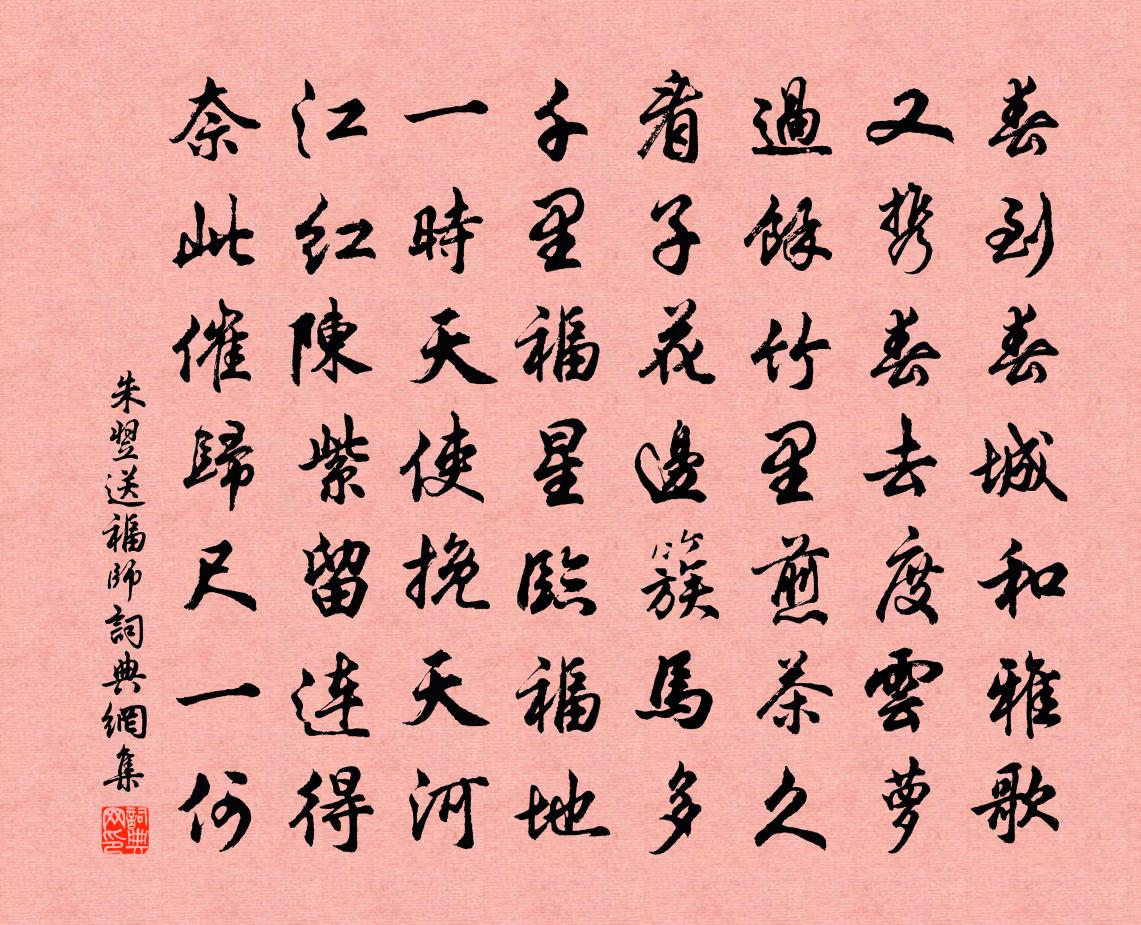 春到春城和雅歌
又携春去度雲夢
過餘竹里煎茶久
看子花邊簇馬多
千里福星臨福地
一時天使挽天河
江紅陳紫留連得
奈此催歸尺一何
朱翌送福師詞典網集
詞典网印